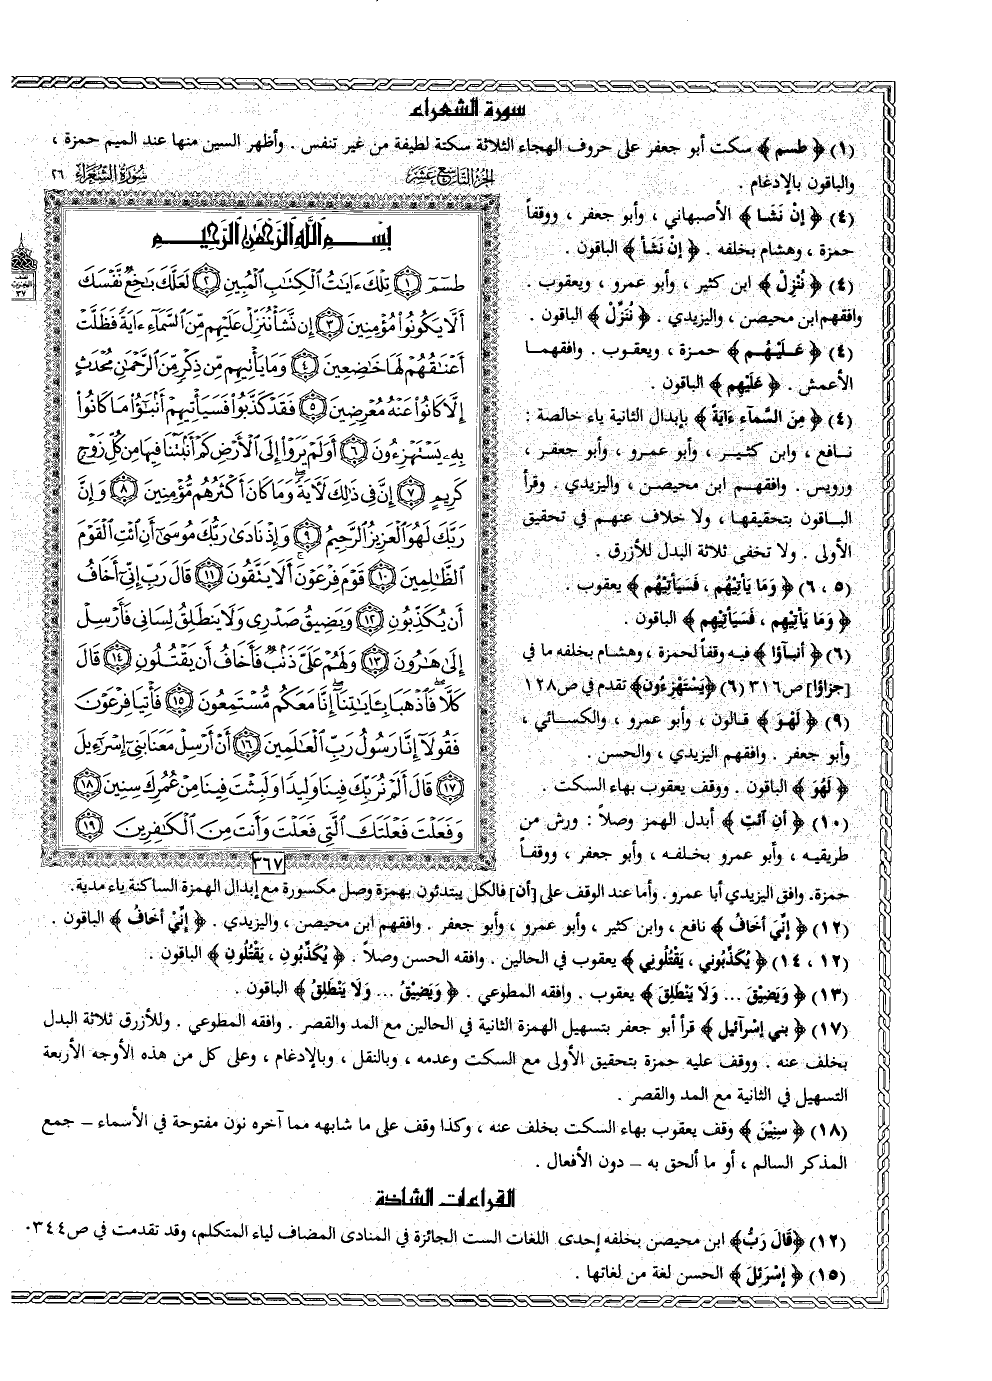 سورة الشعراء
(١) ﴿ طسم ﴾ سكت أبو جعفر على حروف الهجاء الثلاثة سكتة لطيفة من غير تنفس . وأظهر السين منها عند الميم حمزة ،
والباقون بالإدغام .
الجزء التاسع عشر
سورة الشعراء ٢٦
(٤) ﴿ إِنْ نَشَا ﴾ الأصبهاني ، وأبو جعفر ، ووقفاً
حمزة ، وهشام بخلفه . ﴿ إِنْ نَشَأ ﴾ الباقون .
(٤) ﴿ نُنْزِلْ ﴾ ابن كثير ، وأبو عمرو ، ويعقوب .
وافقهم ابن محيصن ، واليزيدي . ﴿ نُنَزِّلْ ﴾ الباقون .
(٤) ﴿ عَلَيْهُم ﴾ حمزة ، ويعقوب . وافقهما
الأعمش . ﴿ عَلَيْهِم ﴾ الباقون .
(٤) ﴿ مِنَ السَّمآءِ ءَايَةً ﴾ بإبدال الثانية ياء خالصة :
نافع ، وابن كثير ، وأبو عمرو ، وأبو جعفر ،
ورويس . وافقهم ابن محيصن ، واليزيدي . وقرأ
الباقون بتحقيقها ، ولا خلاف عنهم في تحقيق
الأولى . ولا تخفى ثلاثة البدل للأزرق .
(٥ ، ٦) ﴿ وَمَا يَأتِيْهُم ، فَسَيَأتِيْهُم ﴾ يعقوب .
﴿ وَمَا يَأتِيْهِم ، فَسَيَأتِيْهِم ﴾ الباقون .
(٦) ﴿ أنبآؤا ﴾ فيه وقفاً لحمزة ، وهشام بخلفه ما في
[جزاؤا] ص٣١٦ (٦) ﴿يَسْتَهْزِءُون﴾ تقدم في ص١٢٨
(٩) ﴿ لَهْوَ ﴾ قالون ، وأبو عمرو ، والكسائي ،
وأبو جعفر . وافقهم اليزيدي ، والحسن .
﴿ لَهُوَ ﴾ الباقون . ووقف يعقوب بهاء السكت .
(١٠) ﴿ أن آئتِ ﴾ أبدل الهمز وصلاً : ورش من
طريقيه ، وأبو عمرو بخلفه ، وأبو جعفر ، ووقفاً
بِسْمِ اللَّهِ الرَّحْمَٰنِ الرَّحِيمِ
طسٓمٓ ١ تِلْكَ ءَايَٰتُ ٱلْكِتَٰبِ ٱلْمُبِينِ ٢ لَعَلَّكَ بَٰخِعٌ نَّفْسَكَ
أَلَّا يَكُونُوا۟ مُؤْمِنِينَ ٣ إِن نَّشَأْ نُنَزِّلْ عَلَيْهِم مِّنَ ٱلسَّمَآءِ ءَايَةً فَظَلَّتْ
أَعْنَٰقُهُمْ لَهَا خَٰضِعِينَ ٤ وَمَا يَأْتِيهِم مِّن ذِكْرٍ مِّنَ ٱلرَّحْمَٰنِ مُحْدَثٍ
إِلَّا كَانُوا۟ عَنْهُ مُعْرِضِينَ ٥ فَقَدْ كَذَّبُوا۟ فَسَيَأْتِيهِمْ أَنۢبَٰٓؤُا۟ مَا كَانُوا۟
بِهِۦ يَسْتَهْزِءُونَ ٦ أَوَلَمْ يَرَوْا۟ إِلَى ٱلْأَرْضِ كَمْ أَنۢبَتْنَا فِيهَا مِن كُلِّ زَوْجٍ
كَرِيمٍ ٧ إِنَّ فِى ذَٰلِكَ لَءَايَةً ۖ وَمَا كَانَ أَكْثَرُهُم مُّؤْمِنِينَ ٨ وَإِنَّ
رَبَّكَ لَهُوَ ٱلْعَزِيزُ ٱلرَّحِيمُ ٩ وَإِذْ نَادَىٰ رَبُّكَ مُوسَىٰٓ أَنِ ٱئْتِ ٱلْقَوْمَ
ٱلظَّٰلِمِينَ ١٠ قَوْمَ فِرْعَوْنَ ۚ أَلَا يَتَّقُونَ ١١ قَالَ رَبِّ إِنِّىٓ أَخَافُ
أَن يُكَذِّبُونِ ١٢ وَيَضِيقُ صَدْرِى وَلَا يَنطَلِقُ لِسَانِى فَأَرْسِلْ
إِلَىٰ هَٰرُونَ ١٣ وَلَهُمْ عَلَىَّ ذَنۢبٌ فَأَخَافُ أَن يَقْتُلُونِ ١٤ قَالَ
كَلَّا ۖ فَٱذْهَبَا بِـَٔايَٰتِنَآ ۖ إِنَّا مَعَكُم مُّسْتَمِعُونَ ١٥ فَأْتِيَا فِرْعَوْنَ
فَقُولَآ إِنَّا رَسُولُ رَبِّ ٱلْعَٰلَمِينَ ١٦ أَنْ أَرْسِلْ مَعَنَا بَنِىٓ إِسْرَٰٓءِيلَ
١٧ قَالَ أَلَمْ نُرَبِّكَ فِينَا وَلِيدًا وَلَبِثْتَ فِينَا مِنْ عُمُرِكَ سِنِينَ ١٨
وَفَعَلْتَ فَعْلَتَكَ ٱلَّتِى فَعَلْتَ وَأَنتَ مِنَ ٱلْكَٰفِرِينَ ١٩
٣٦٧
حمزة. وافق اليزيدي أبا عمرو . وأما عند الوقف على [أن] فالكل يبتدئون بهمزة وصل مكسورة مع إبدال الهمزة الساكنة ياء مدية.
(١٢) ﴿ إِنِّيَ أخَافُ ﴾ نافع ، وابن كثير ، وأبو عمرو ، وأبو جعفر . وافقهم ابن محيصن ، واليزيدي . ﴿ إِنِّيْ أخَافُ ﴾ الباقون .
(١٢ ، ١٤) ﴿ يُكَذِّبُوني ، يَقْتُلُوني ﴾ يعقوب في الحالين . وافقه الحسن وصلاً . ﴿ يُكَذِّبُونِ ، يَقْتُلُونِ ﴾ الباقون .
(١٣) ﴿ وَيَضِيْقَ ... وَلَا يَنْطَلِقَ ﴾ يعقوب . وافقه المطوعي . ﴿ وَيَضِيْقُ ... وَلَا يَنْطَلِقُ ﴾ الباقون .
(١٧) ﴿ بني إسْرآئيل ﴾ قرأ أبو جعفر بتسهيل الهمزة الثانية في الحالين مع المد والقصر . وافقه المطوعي . وللأزرق ثلاثة البدل
بخلف عنه . ووقف عليه حمزة بتحقيق الأولى مع السكت وعدمه ، وبالنقل ، وبالإدغام ، وعلى كل من هذه الأوجه الأربعة
التسهيل في الثانية مع المد والقصر .
(١٨) ﴿ سنِيْنَ ﴾ وقف يعقوب بهاء السكت بخلف عنه ، وكذا وقف على ما شابهه مما آخره نون مفتوحة في الأسماء – جمع
المذكر السالم ، أو ما ألحق به – دون الأفعال .
القراءات الشاذة
(١٢) ﴿قَالَ رَبُّ﴾ ابن محيصن بخلفه إحدى اللغات الست الجائزة في المنادى المضاف لياء المتكلم، وقد تقدمت في ص٣٤٤.
(١٥) ﴿ إسْرَئِلَ ﴾ الحسن لغة من لغاتها .